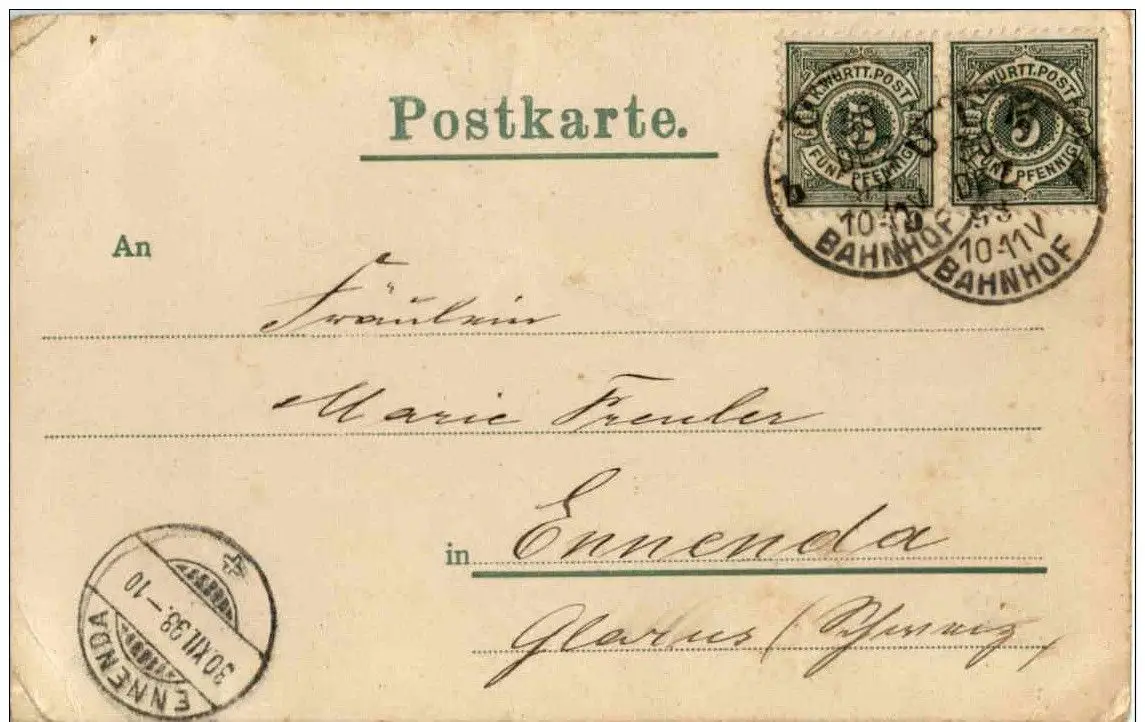 Postkarte.
K. WÜRTT. POST
5
FÜNF PFENNIG
K. WÜRTT. POST
5
FÜNF PFENNIG
10-12V
BAHNHOF
DEZ
93
10-11V
BAHNHOF
An
Fräulein
Marie Freuler
in Ennenda
Glarus (Schweiz)
30.XII.93.-10
ENNENDA